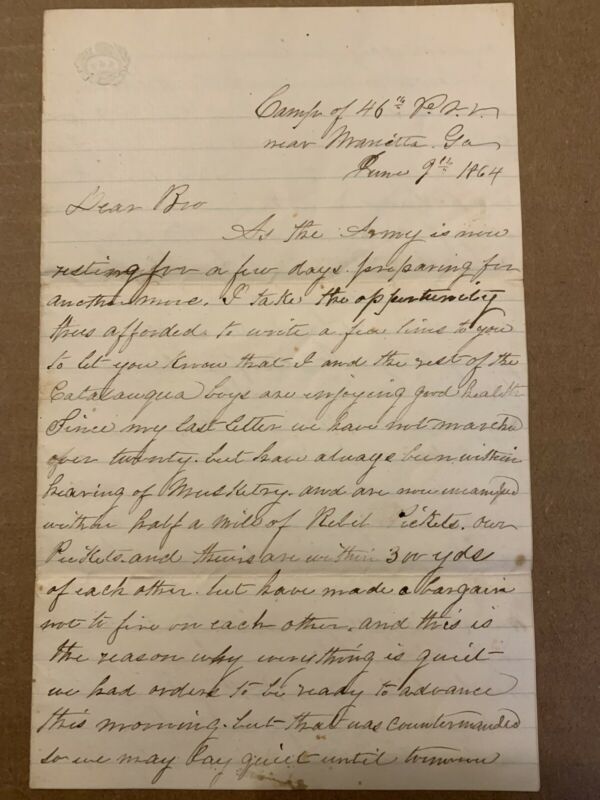 Camp of 46th Pa. V. V.
near Marietta Ga
June 9th 1864
Dear Bro
As the Army is now
resting for a few days preparing for
another move. I take the oppertunity
thus afforded to write a few lines to you
to let you know that I and the rest of the
Catasauqua boys are enjoying good health
Since my last letter we have not marched
over twenty. but have always been within
hearing of Musketry. and are now encamped
within half a mile of Rebil Pickets. Our
Pickets and theirs are within 300 yds
of each other. but have made a bargain
not to fire on each other. and this is
the reason why everything is quiet
we had orders to be ready to advance
this morning. but that was countermanded
so we may lay quiet until tomorrow